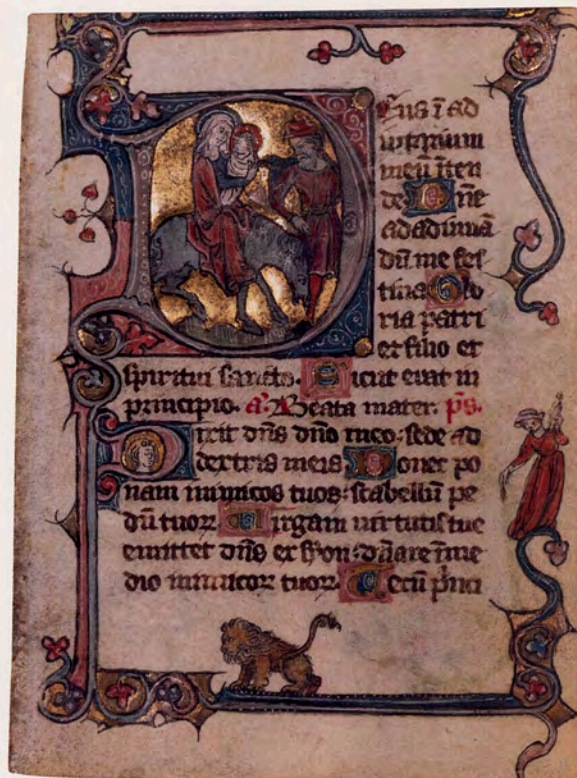 Deus ī ad
iutorium
meū īten
de Dñe
ad adiuuā
dū me fes
tina Glo
ria patri
et filio et
spiritui sancto. Sicut erat in
principio. a. Beata mater. p̄s.
Dixit dn̄s dn̄o meo: sede ad
dextris meis Donec po
nam inimicos tuos: scabellū pe
dū tuoꝝ Uirgam uirtutis tue
emittet dn̄s ex syon: dn̄are ī me
dio inimicoꝝ tuoꝝ Tecū p̄nci